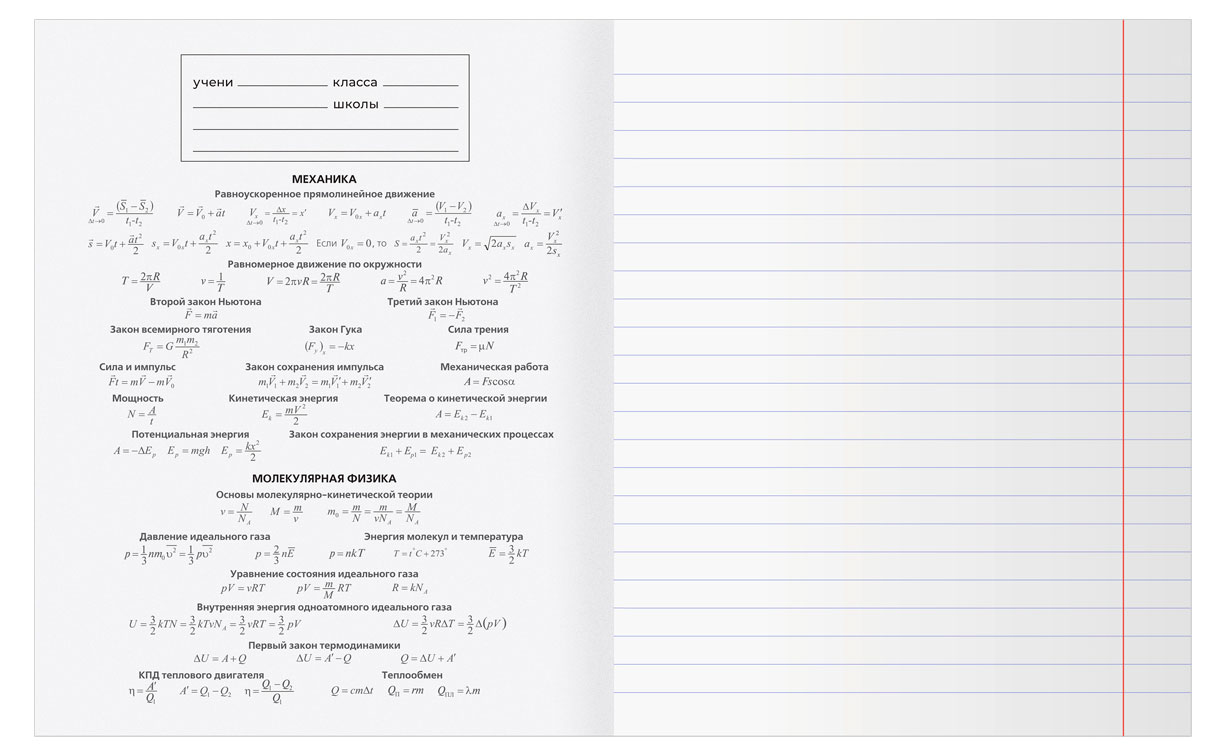 учени ______ класса ______
______ школы ______
МЕХАНИКА
Равноускоренное прямолинейное движение
V⃗ (Δt→0) = (S̅₁ − S̅₂)/(t₁-t₂) V⃗ = V⃗₀ + a⃗t Vₓ (Δt→0) = Δx/(t₁-t₂) = x′ Vₓ = V₀ₓ + aₓt a̅ (Δt→0) = (V₁ − V₂)/(t₁-t₂) aₓ (Δt→0) = ΔVₓ/(t₁-t₂) = Vₓ′
s⃗ = V₀t + a⃗t²/2 sₓ = V₀ₓt + aₓt²/2 x = x₀ + V₀ₓt + aₓt²/2 Если V₀ₓ = 0, то S = aₓt²/2 = Vₓ²/2aₓ Vₓ = √(2aₓsₓ) aₓ = Vₓ²/2sₓ
Равномерное движение по окружности
T = 2πR/V ν = 1/T V = 2πνR = 2πR/T a = v²/R = 4π²R v² = 4π²R/T²
Второй закон Ньютона Третий закон Ньютона
F⃗ = ma⃗ F⃗₁ = −F⃗₂
Закон всемирного тяготения Закон Гука Сила трения
F_T = G m₁m₂/R² (F_y)ₓ = −kx Fтр = μN
Сила и импульс Закон сохранения импульса Механическая работа
F⃗t = mV⃗ − mV⃗₀ m₁V⃗₁ + m₂V⃗₂ = m₁V⃗₁′ + m₂V⃗₂′ A = Fscosα
Мощность Кинетическая энергия Теорема о кинетической энергии
N = A/t E_k = mV²/2 A = E_k2 − E_k1
Потенциальная энергия Закон сохранения энергии в механических процессах
A = −ΔE_p E_p = mgh E_p = kx²/2 E_k1 + E_p1 = E_k2 + E_p2
МОЛЕКУЛЯРНАЯ ФИЗИКА
Основы молекулярно-кинетической теории
ν = N/N_A M = m/ν m₀ = m/N = m/νN_A = M/N_A
Давление идеального газа Энергия молекул и температура
p = 1/3 nm₀υ̅² = 1/3 pυ̅² p = 2/3 nE̅ p = nkT T = t°C + 273° E̅ = 3/2 kT
Уравнение состояния идеального газа
pV = νRT pV = m/M RT R = kN_A
Внутренняя энергия одноатомного идеального газа
U = 3/2 kTN = 3/2 kTνN_A = 3/2 νRT = 3/2 pV ΔU = 3/2 νRΔT = 3/2 Δ(pV)
Первый закон термодинамики
ΔU = A + Q ΔU = A′ − Q Q = ΔU + A′
КПД теплового двигателя Теплообмен
η = A′/Q₁ A′ = Q₁ − Q₂ η = (Q₁ − Q₂)/Q₁ Q = cmΔt Q_П = rm Q_ПЛ = λm